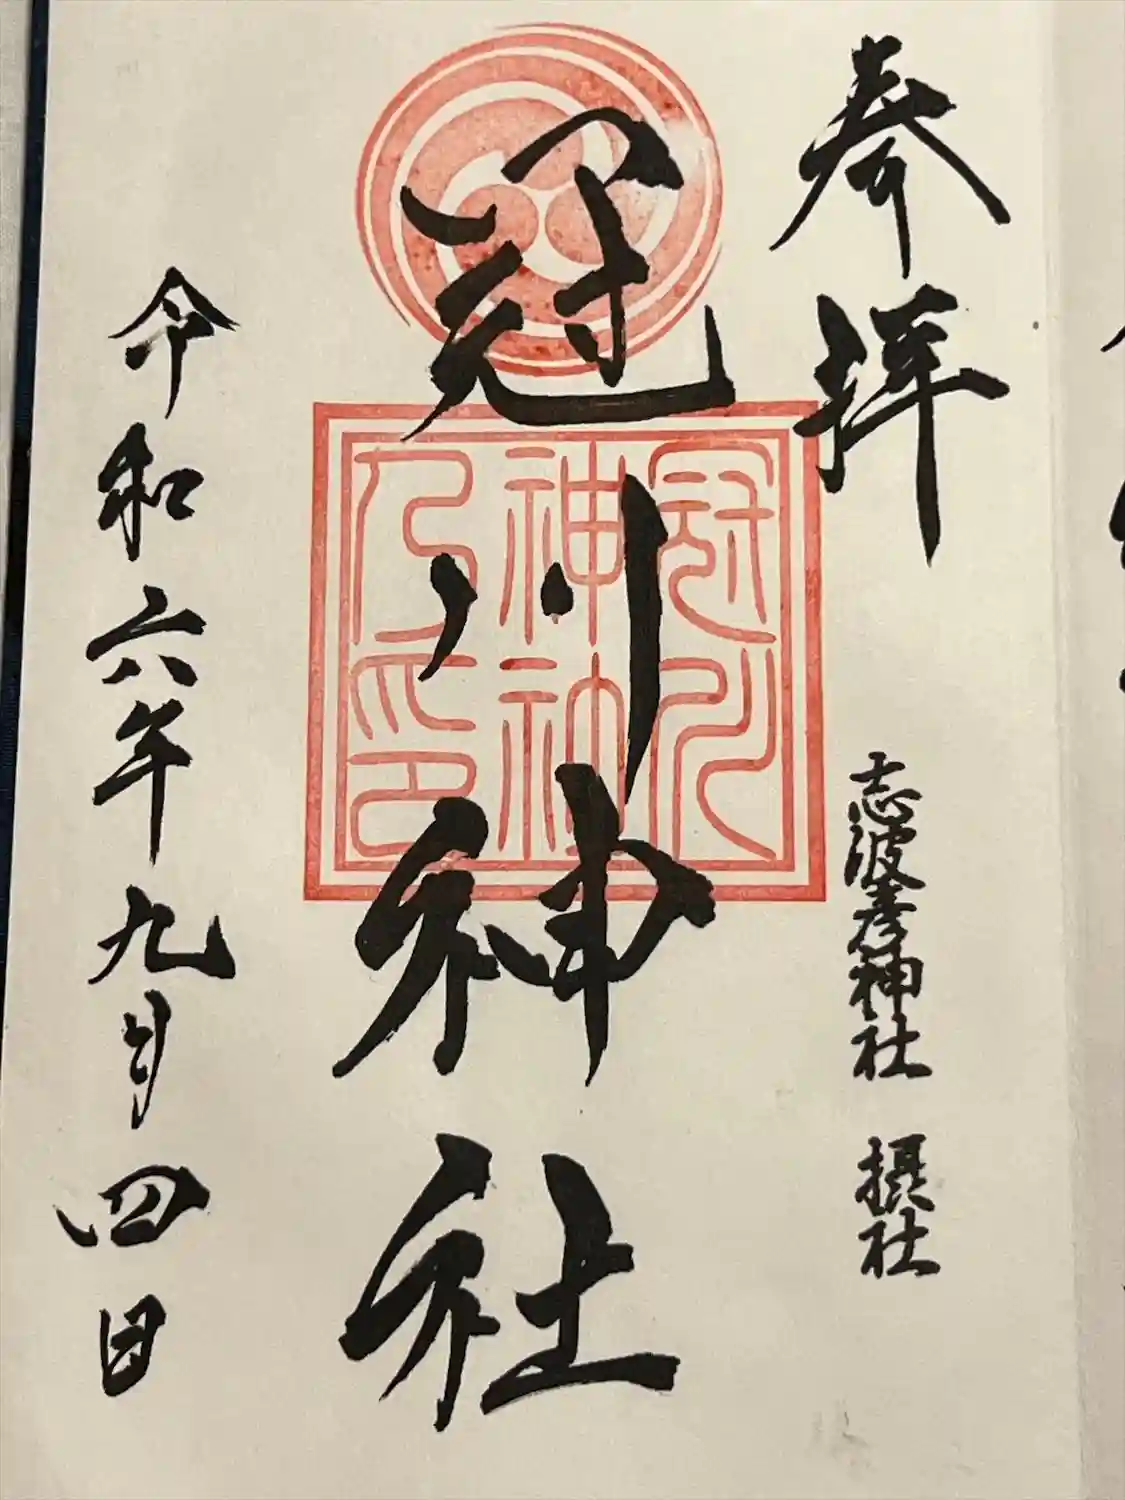 奉拝
志波彦神社 摂社
冠川神社
冠川
神社
乃印
令和六年九月四日